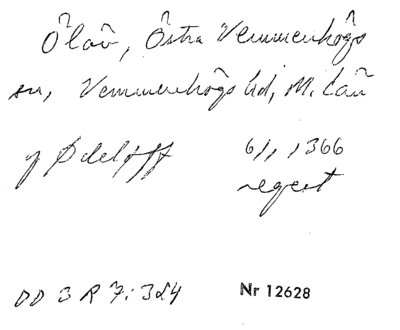 Östra Vemmenhögs
sn, Vemmenhögs hd, M. län
6/1 1366
regest
DD 3 R 7: 324
Nr 12628